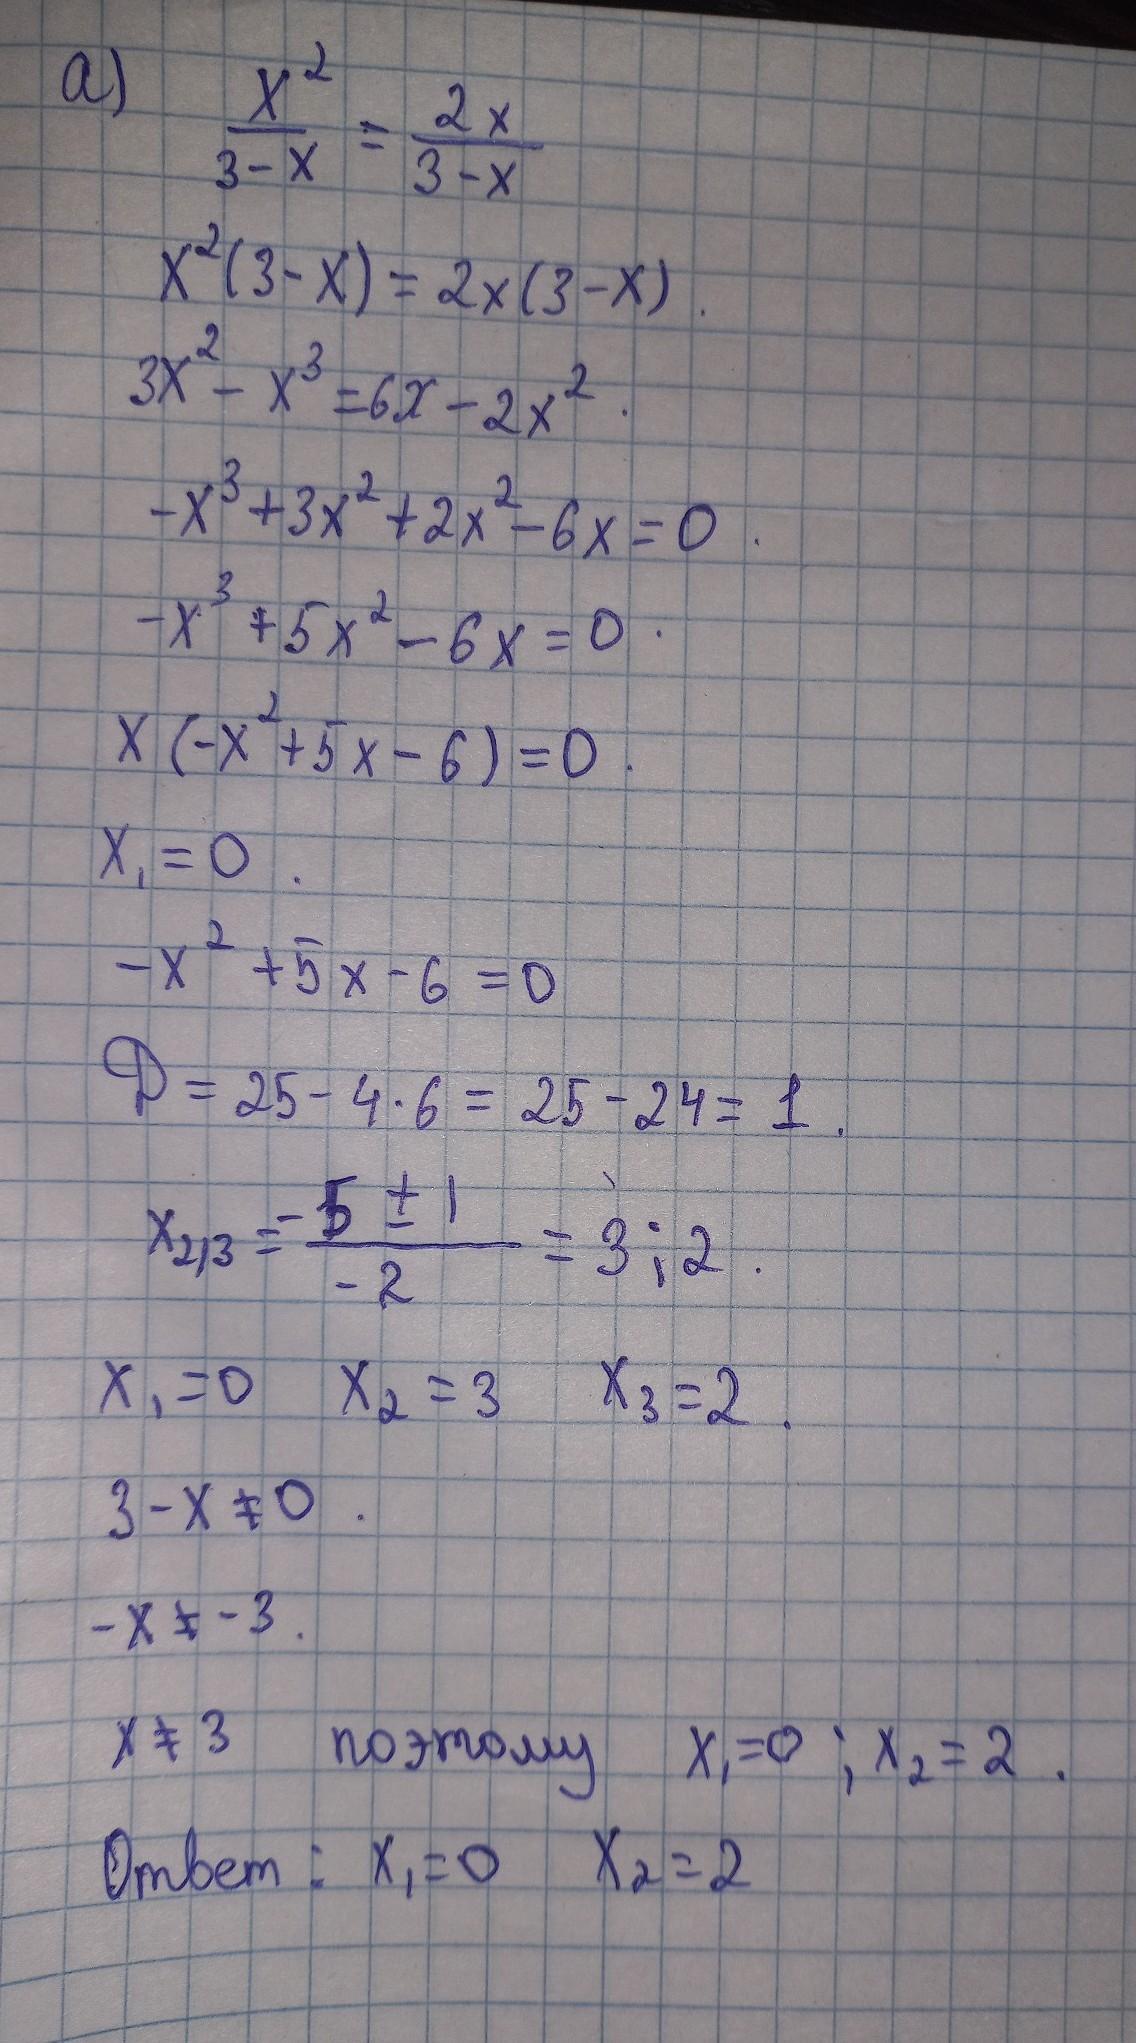 а) x²/(3-x) = 2x/(3-x)
x²(3-x)=2x(3-x).
3x²-x³=6x-2x².
-x³+3x²+2x²-6x=0.
-x³+5x²-6x=0.
x(-x²+5x-6)=0.
x₁=0.
-x²+5x-6=0
D=25-4·6=25-24=1.
x₂,₃=(-5±1)/(-2)=3;2.
x₁=0 x₂=3 x₃=2.
3-x≠0.
-x≠-3.
x≠3 поэтому x₁=0; x₂=2.
Ответ: x₁=0 x₂=2